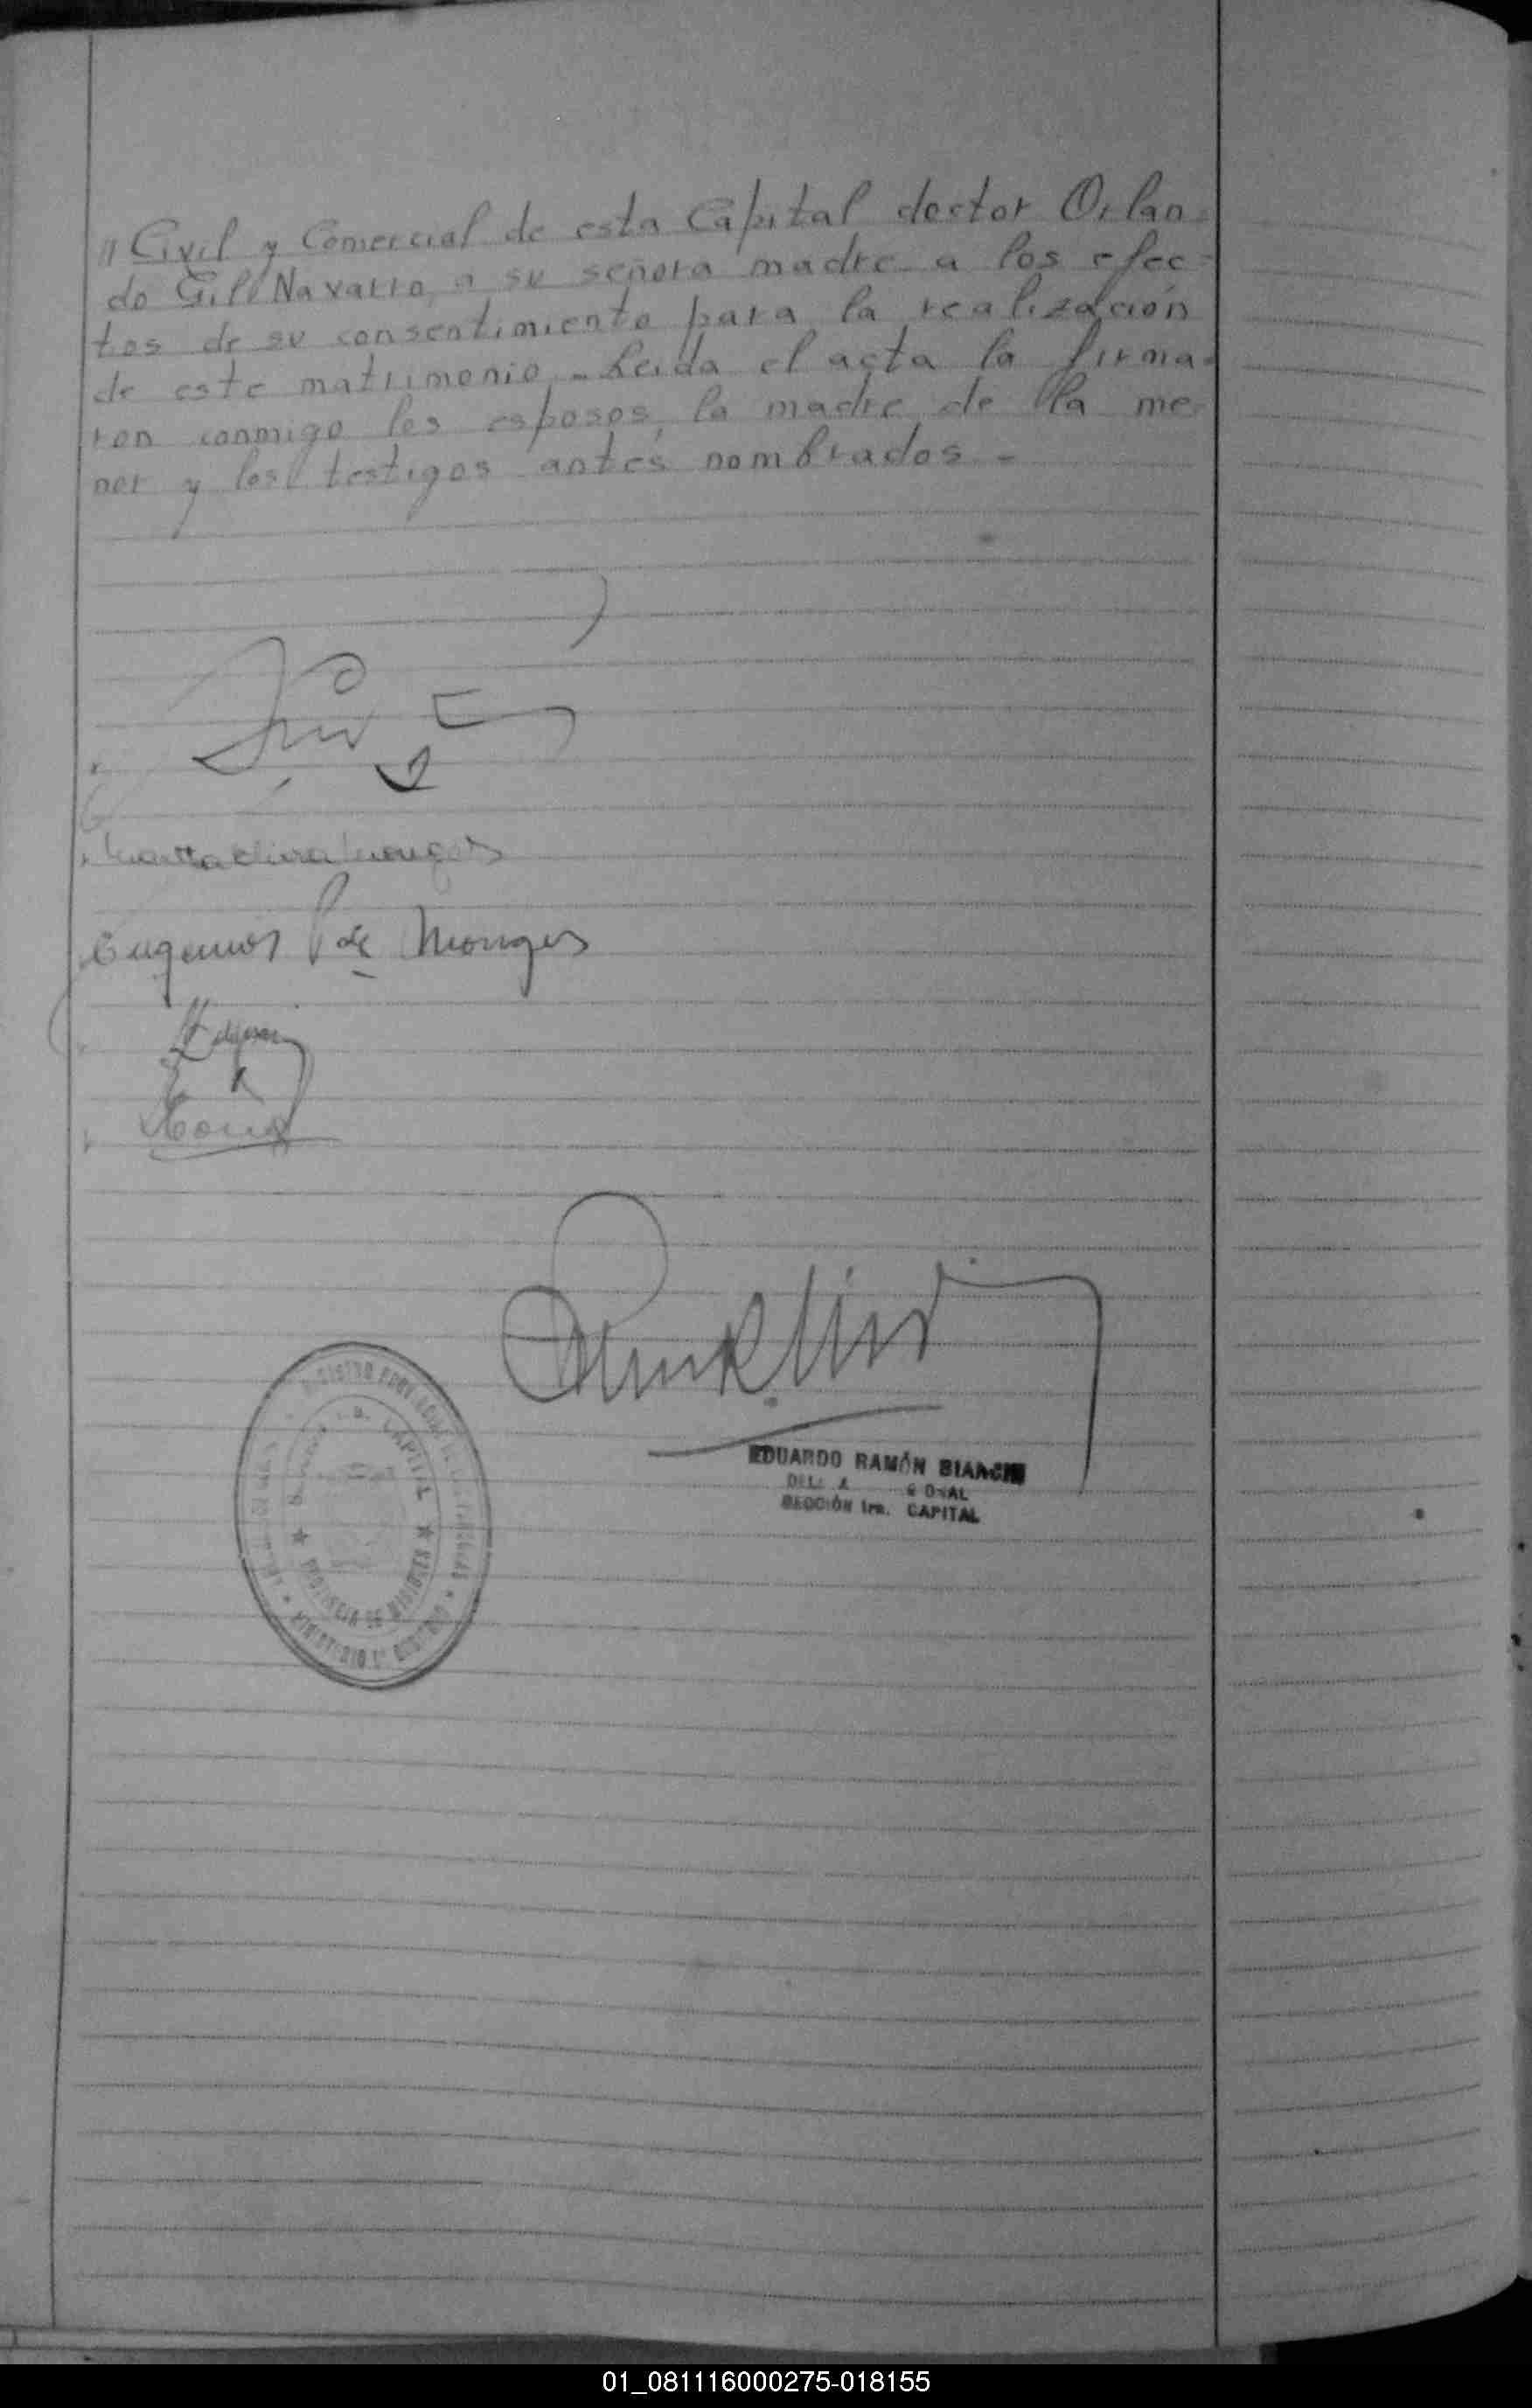 " Civil y Comercial de esta Capital doctor Orlan=
do Gill Navarro, a su señora madre a los efec=
tos de su consentimiento para la realización
de este matrimonio.- Leida el acta la firma=
ron conmigo los esposos, la madre de la me-
nor y los testigos antes nombrados.-
P de Monges
EDUARDO RAMÓN BIANCHI
SECCIÓN 1ra. CAPITAL
CAPITAL
PROVINCIA DE MISIONES
01_081116000275-018155